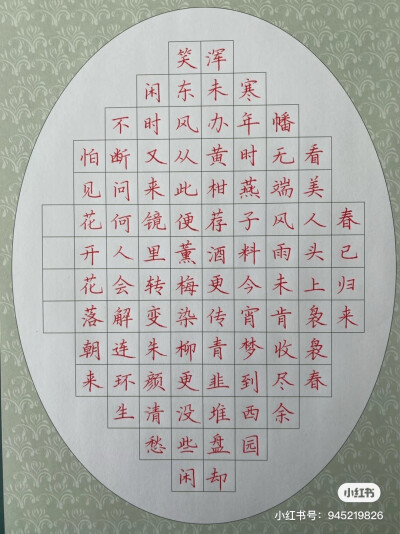 春已归来
看美人头上袅袅春
幡无端风雨未肯收尽余
寒年时燕子料今宵梦到西园
浑未办黄柑荐酒更传青韭堆盘却
笑东风从此便薰梅染柳更没些闲
闲时又来镜里转变朱颜清愁
不断问何人会解连环生
怕见花开花落朝来
小红书
小红书号：945219826